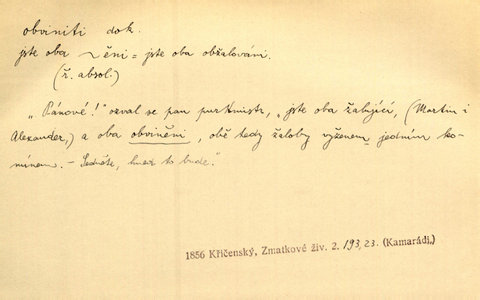 obviniti dok.
jste oba ~ěni = jste oba obžalováni.
(ř. absol.)
„Pánové!“ ozval se pan purkmistr, „jste oba žalující, (Martin i
Alexander,) a oba obviněni, obě tedy žaloby vyženem jedním ko-
mínem. – Sedněte, hned to bude.“
1856 Křičenský, Zmatkové živ. 2. 193,23. (Kamarádi,)